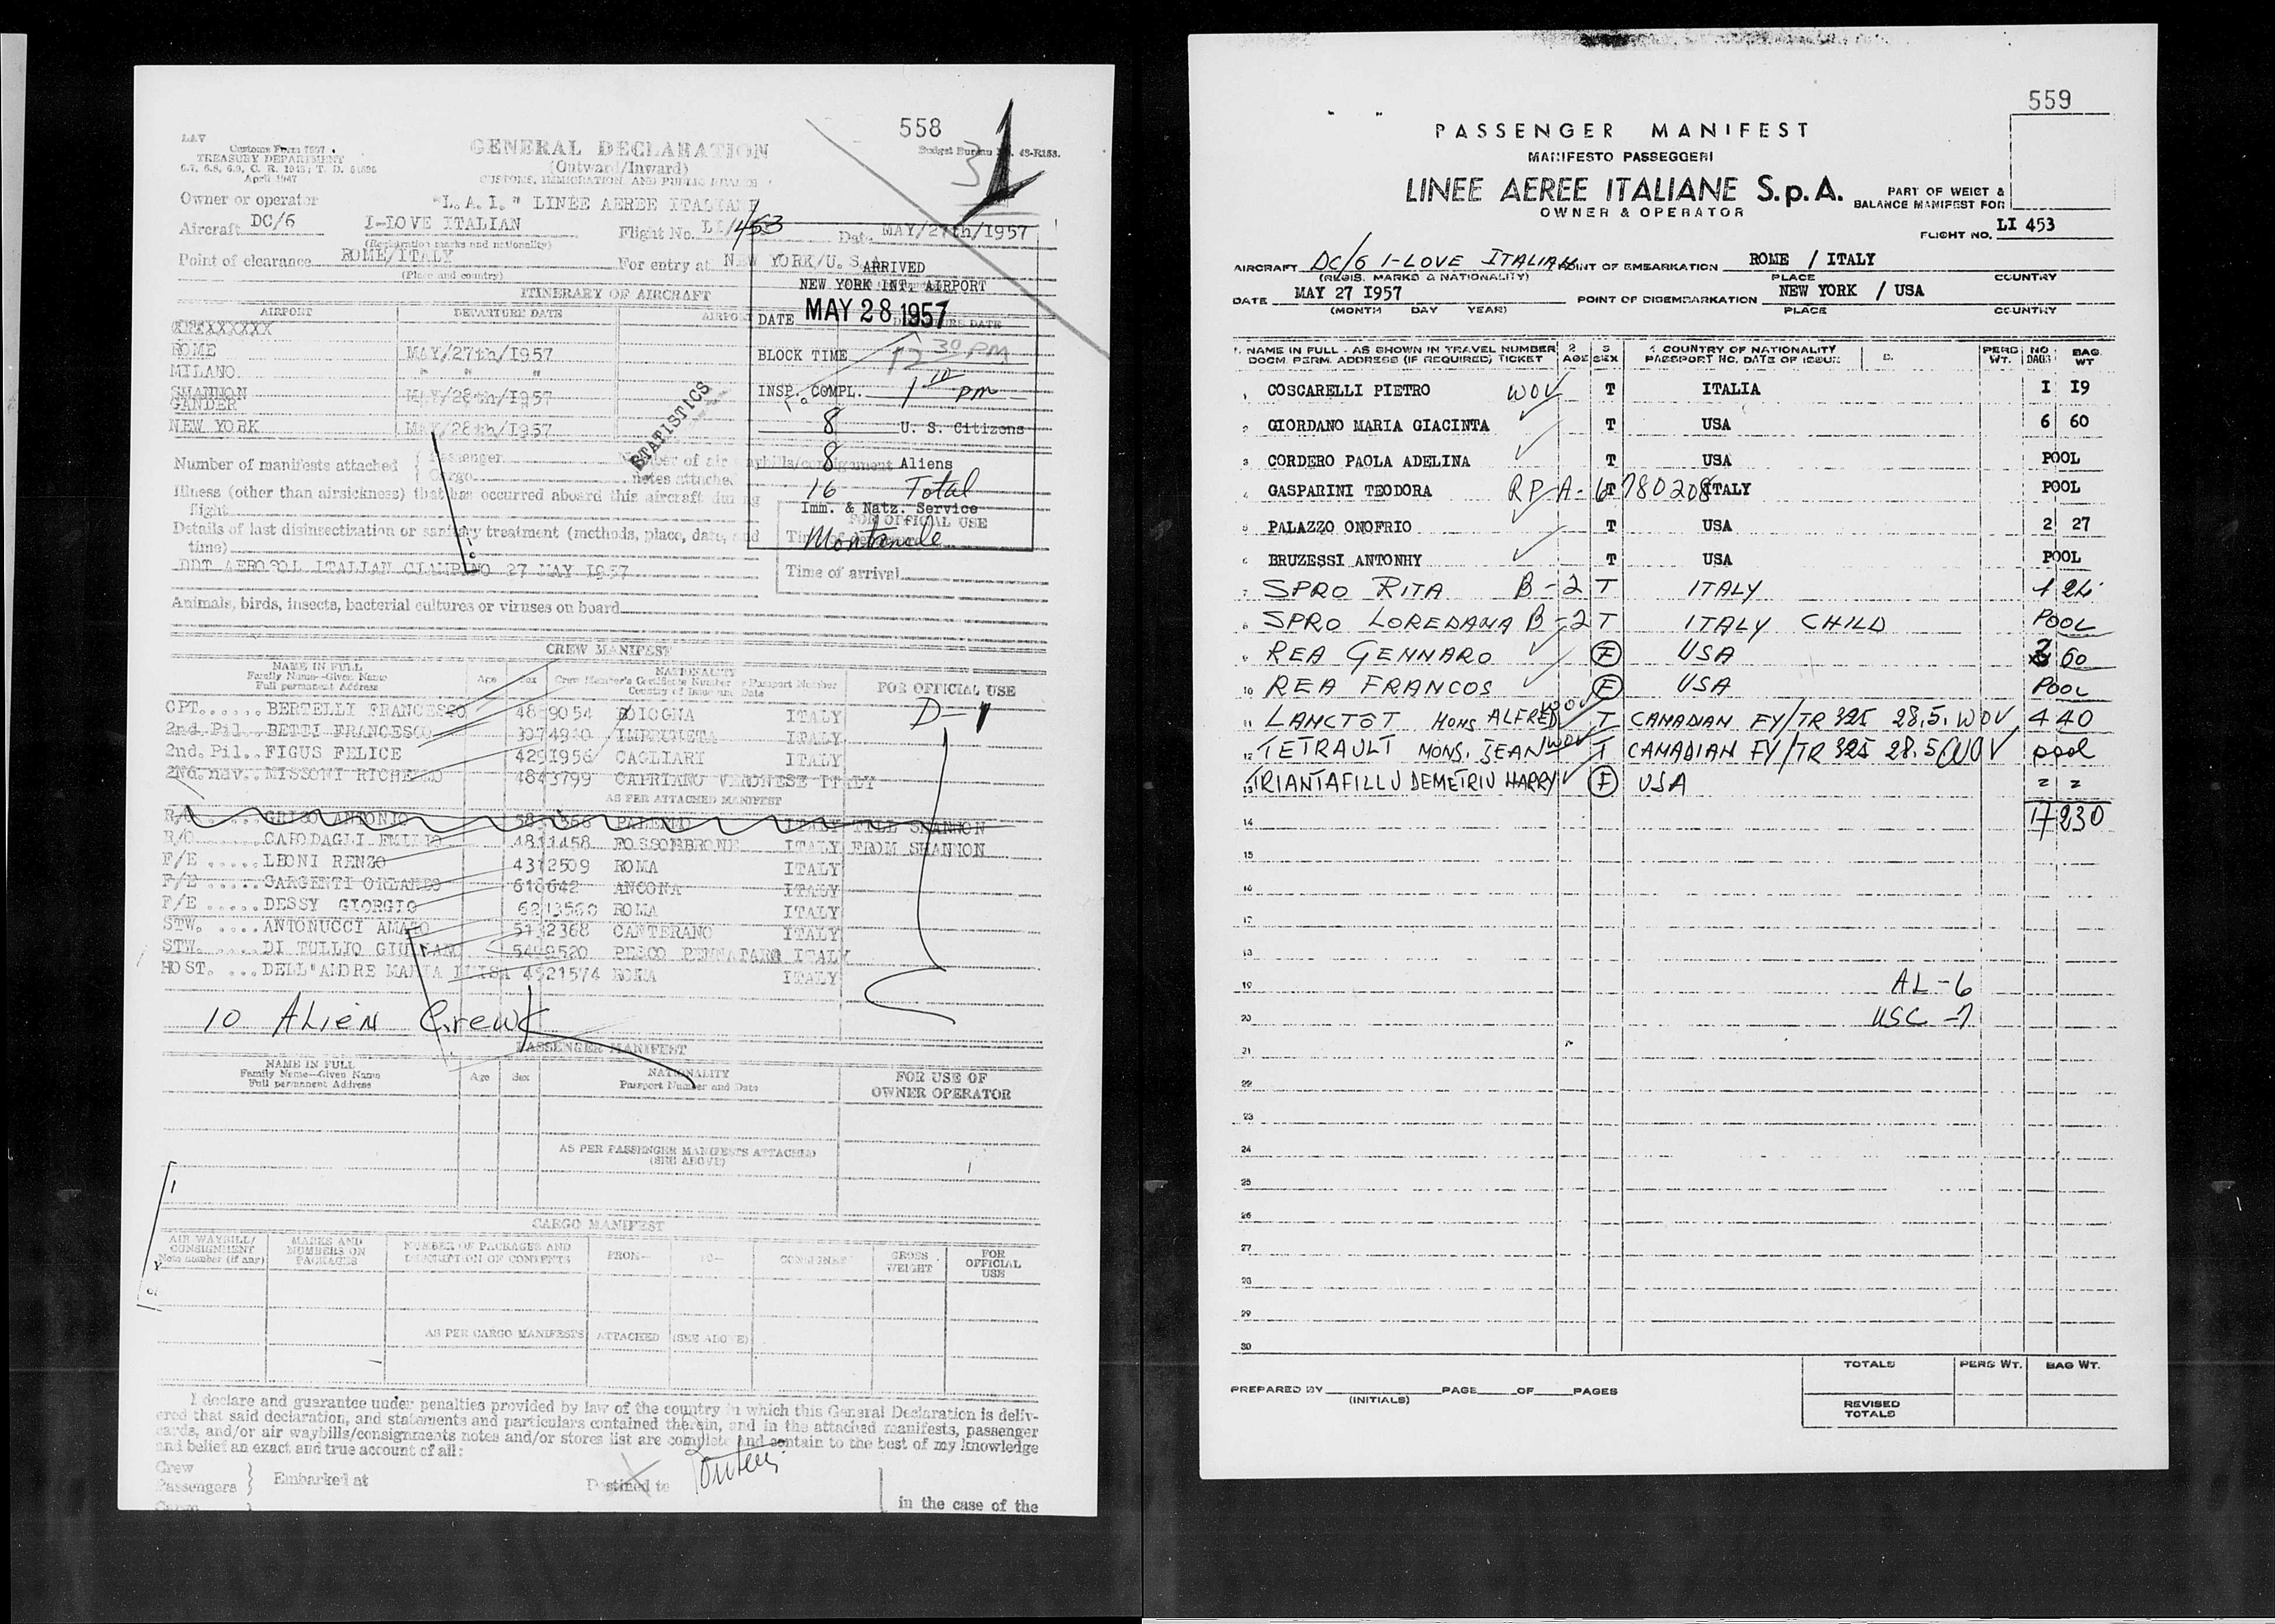 558
LAV
Customs Form 7507
TREASURY DEPARTMENT
April 1947
GENERAL DECLARATION
(Outward/Inward)
CUSTOMS, IMMIGRATION, AND PUBLIC HEALTH
Budget Bureau No. 48-R158.
3
Owner or operator "L.A.I." LINEE AEREE ITALIANE
Aircraft DC/6 I-LOVE ITALIAN Flight No. LI/453 Date MAY/27th/1957
(Registration marks and nationality)
Point of clearance ROME/ITALY For entry at NEW YORK/U.S.
(Place and country)
ARRIVED
NEW YORK INT. AIRPORT
DATE MAY 28 1957
BLOCK TIME 12 30 PM
INSP. COMPL. 1 10 PM
8 U. S. Citizens
8 Aliens
16 Total
Imm. & Natz. Service
STATISTICS
ITINERARY OF AIRCRAFT
AIRPORT DEPARTURE DATE AIRPORT DEPARTURE DATE
ROME MAY/27th/1957
MILANO " " "
SHANNON MAY/28th/1957
GANDER
NEW YORK MAY/28th/1957
Number of manifests attached { Passenger
Cargo
Number of air waybills/consignment
notes attached
Illness (other than airsickness) that has occurred aboard this aircraft during
flight
Details of last disinsectization or sanitary treatment (methods, place, date, and
time)
DDT AEROSOL ITALIAN CIAMPINO 27 MAY 1957
FOR OFFICIAL USE
Time of arrival
Animals, birds, insects, bacterial cultures or viruses on board
CREW MANIFEST
NAME IN FULL
Family Name—Given Name
Full permanent Address
Age Sex
NATIONALITY
Crew Member's Certificate Number or Passport Number
Country of Issue and Date
FOR OFFICIAL USE
CPT...... BERTELLI FRANCESCO 4889054 BOLOGNA ITALY D-1
2nd. Pil.. BETTI FRANCESCO 3074940 IMPRUNETA ITALY
2nd. Pil.. FIGUS FELICE 4291956 CAGLIARI ITALY
2Nd. nav.. MISSONI RICHERZO 4843799 CAPRIANO VERONESE ITALY
AS PER ATTACHED MANIFEST
R/O ..... GRISO ANTONIO PALERMO ITALY TILL SHANNON
R/O ..... CAPODAGLI EMILIO 4811458 FOSSOMBRONE ITALY FROM SHANNON
F/E ..... LEONI RENZO 4312509 ROMA ITALY
F/E ..... SARGENTI ORLANDO 618642 ANCONA ITALY
F/E ..... DESSY GIORGIO 6213560 ROMA ITALY
STW. .... ANTONUCCI AMATO 5132368 CANTERANO ITALY
STW. .... DI TULLIO GIULIANO 5499520 PESCO PENNATARO ITALY
HOST. ... DELL'ANDRE MARIA LUISA 4521574 ROMA ITALY
10 Alien Crew
PASSENGER MANIFEST
NAME IN FULL
Family Name—Given Name
Full permanent Address
Age Sex
NATIONALITY
Passport Number and Date
FOR USE OF
OWNER OPERATOR
AS PER PASSENGER MANIFESTS ATTACHED
(SEE ABOVE)
CARGO MANIFEST
AIR WAYBILL/
CONSIGNMENT
Note number (if any)
MARKS AND
NUMBERS ON
PACKAGES
NUMBER OF PACKAGES AND
DESCRIPTION OF CONTENTS
FROM— TO— CONSIGNEE
GROSS
WEIGHT
FOR
OFFICIAL
USE
AS PER CARGO MANIFESTS ATTACHED (SEE ABOVE)
I declare and guarantee under penalties provided by law of the country in which this General Declaration is deliv-
ered that said declaration, and statements and particulars contained therein, and in the attached manifests, passenger
cards, and/or air waybills/consignments notes and/or stores list are complete and contain to the best of my knowledge
and belief an exact and true account of all:
Crew
Passengers
Cargo
Embarked at Destined to
in the case of the
559
PASSENGER MANIFEST
MANIFESTO PASSEGGERI
LINEE AEREE ITALIANE S.p.A.
OWNER & OPERATOR
PART OF WEIGT &
BALANCE MANIFEST FOR
FLIGHT NO. LI 453
AIRCRAFT DC/6 I-LOVE ITALIAN POINT OF EMBARKATION ROME / ITALY
(REGIS. MARKS & NATIONALITY) PLACE COUNTRY
DATE MAY 27 1957 POINT OF DISEMBARKATION NEW YORK / USA
(MONTH DAY YEAR) PLACE COUNTRY
1. NAME IN FULL - AS SHOWN IN TRAVEL NUMBER
DOCM. PERM. ADDRESS (IF REQUIRED) TICKET
2 AGE
3 SEX
4 COUNTRY OF NATIONALITY
PASSPORT NO. DATE OF ISSUE
PERS WT.
NO BAGS
BAG. WT
1 COSCARELLI PIETRO WOV T ITALIA 1 19
2 GIORDANO MARIA GIACINTA T USA 6 60
3 CORDERO PAOLA ADELINA T USA POOL
4 GASPARINI TEODORA RP A-6 780208 T ITALY POOL
5 PALAZZO ONOFRIO T USA 2 27
6 BRUZESSI ANTONHY T USA POOL
7 SPRO RITA B-2 T ITALY 1 24
8 SPRO LOREDANA B-2 T ITALY CHILD POOL
9 REA GENNARO F USA 3 60
10 REA FRANCOS F USA POOL
11 LANCTOT MONS ALFRED WOV T CANADIAN FY/TR 325 28.5. WOV 4 40
12 TETRAULT MONS. JEAN WOV T CANADIAN FY/TR 325 28.5 WOV pool
13 TRIANTAFILLU DEMETRIU HARRY F USA = =
14 17 230
15
16
17
18
19 AL-6
20 USC-7
21
22
23
24
25
26
27
28
29
30
TOTALS PERS WT. BAG WT.
PREPARED BY (INITIALS) PAGE OF PAGES
REVISED
TOTALS